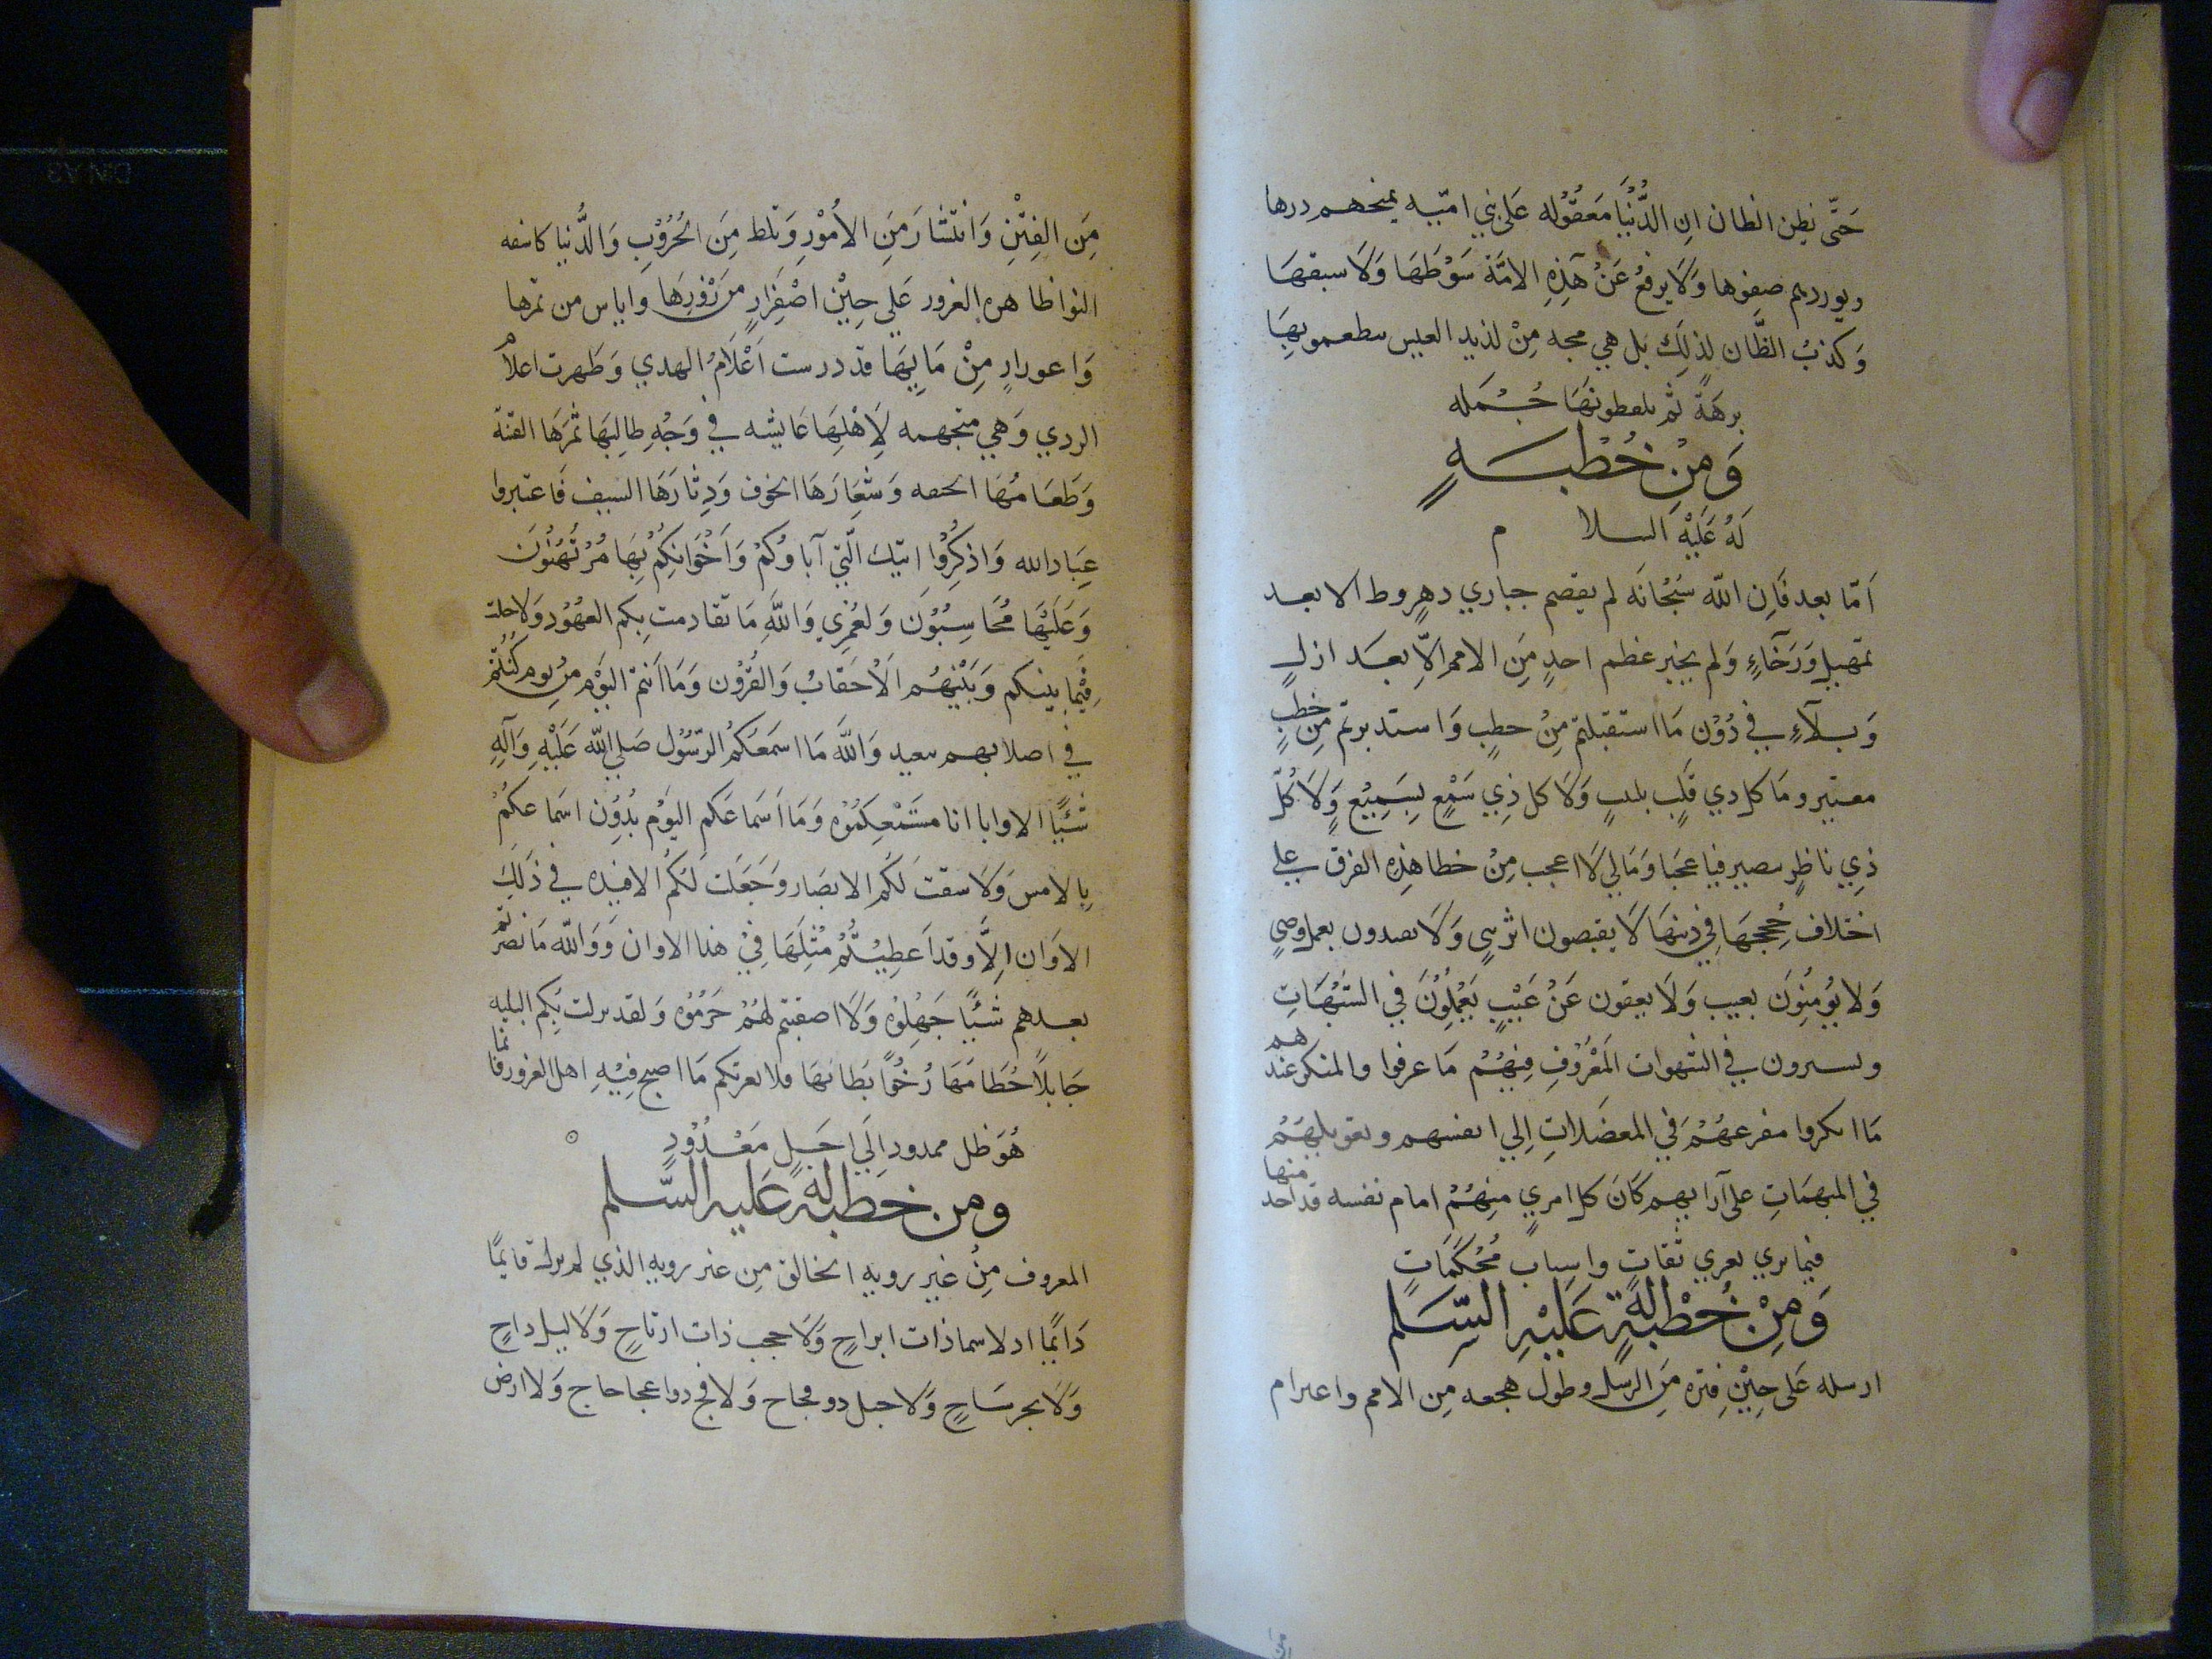 حَتَّى يظن الظان ان الدُّنْيَا مَعقُوله عَلى بني اميّه يمنحهم درها
ويوردهم صفوها وَلَا يرفعُ عَنْ هَذِهِ الامَّة سَوْطَهَا وَلَا سيفهَا
وَكذبُ الظَّان لِذلِكَ بل هي مجه مِنْ لذيد العيس يطعمونهَا
برهَةً ثم يلفظونهَا جُمله
وَمِنْ خُطْبَةٍ
لَهُ عَلَيْهِ السلام
اَمّا بعد فَاِن اللّه سُبْحَانَه لم يقصم جباري دهرٍ وط الا بعد
تمهيل وَرَخَآءٍ وَلم يجبر عظم احدٍ مِنَ الامم الّا بعَد ازلٍ
وَبلَآءٍ في دُوْن مَا استقبلتم مِنْ خطب وَاستدبرتم مِن خطبٍ
معتبر ومَا كل ذي قَلبٍ بلبيبٍ وَلَا كل ذِي سَمْعٍ بِسَمِيْعٍ وَلَا كُلّ
ذِي ناظرٍ ببصير فيا عجَبا وَمَا لِي لَا اعجب مِنْ خطا هٰذِهِ الفرق على
اختلاف حُججهَا فِي دينهَا لَا يقتصون اثر نبيٍ وَلَا يقتدون بعمل وصيٍ
وَلا يُؤمِنُونَ بغيب وَلَا يعفون عَنْ عَيْبٍ يَعْمَلُوْنَ فِي الشبُهَاتِ
ويسيرون في الشهوات المَعْرُوْف فِيهُمْ مَا عرفوا والمنكر عندهم
مَا انكروا مفزعهُمْ فِي المعضَلاتِ اِلي انفسهم وتعويلهُمْ
في المبهمَاتِ على آرايهم كَانَ كل امريٍ منهُمْ امام نفسه قد اخد منها
فيما يري بعري ثقاتٍ واسباب مُحْكَمَاتٍ
وَمِنْ خُطْبَةٍ لَهُ عَلَيْهِ السَّلم
ارسله عَلى حِيْنِ فتره مِنَ الرسل وطول هجعه مِن الامم واعتزام
مِنَ الفِتَنِ وَانتشَار مِنَ الأمُوْرِ وَتلظ مِنَ الحُرُوْبِ وَالدُّنيا كاسفه
النوا ظاهره الغرور عَلي حِيْنِ اصْفِرَارٍ من وَرْقِهَا واياس من ثمرها
وَاعورارٍ مِنْ مَايِهَا قد درست اَعْلَامُ الهدي وَظهرت اعلام
الردي وَهي متجهمه لِاَهْلِهَا عَابسه في وَجْهِ طالِبهَا ثمَرهَا الفتنة
وَطعَامُهَا الجيفه وَشعَارهَا الخوف وَدِثارَهَا السيف فَاعتبروا
عِبَاد الله وَاذكِرُوا اتيك الّتي آباوُكمْ وَاَخْوَانكِمْ بِهَا مُرْتهَنُونَ
وَعَلَيْهَا مُحَاسِبُوْنَ وَلعُمْرِي وَاللّهِ مَا تقادمت بِكم العهُوُد وَلا خلت
فِيْمَا بينكم وَبَيْنِهُم الْاَحقَابُ وَالقُرُوْن وَمَا اَنتم اليَوْم من يوم كُنتُم
في اصلابهم ببعيد وَاللّه مَا اسمَعكمُ الرّسُول صَلي اللّه عَلَيْهِ وَآلِهِ
شَيئًا الا وها انا مسَمعكمُوْه وَمَا اَسمَاعكم اليَوْم بدُوْن اسمَاعكمْ
بِالامس وَلَا سقت لَكُم الابصَار وَجَعَلت لَكُم الافيده في ذَلِكَ
الاوَان اِلَّا وقد اَعطِيْتُمْ مُثِلَهَا فِيْ هذا الاوان وَوَاللّه مَا بصرتم
بعدهم شَيئًا جَهِلُوْه وَلَا اصفيتم لهُمْ حَرمُوْه وَلقد نزلت بِكم البليه
جَايلًا حُطَامهَا رُخوًا بَطانهَا فلا يغرنكم مَا اصبح فِيْهِ اهل الغرور فانما
هُوَ ظل ممدود اِلَي اجَلٍ مَعْدُوْدٍ
ومن خطبة له عَليه السَّلم
المعروف مِنْ غير رويه الخالق مِن غير رويه الذي لم يزل قايمًا
دَايمًا اد لا سما ذات ابراجٍ وَلَا حجب ذات ارتاجٍ وَلَا ليل داجٍ
وَلَا بحر سَاجٍ وَلَا جبل دو فجاج وَلا فج دوا عجاجاج وَلا ارض